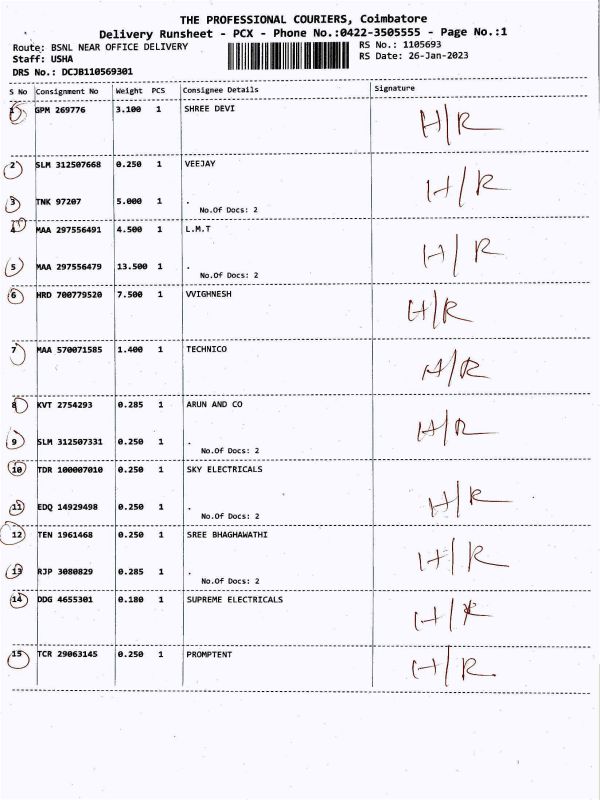 THE PROFESSIONAL COURIERS, Coimbatore
Delivery Runsheet - PCX - Phone No.:0422-3505555 - Page No.:1
Route: BSNL NEAR OFFICE DELIVERY RS No.: 1105693
Staff: USHA RS Date: 26-Jan-2023
DRS No.: DCJB110569301
S No Consignment No Weight PCS Consignee Details Signature
1 GPM 269776 3.100 1 SHREE DEVI H/R
2 SLM 312507668 0.250 1 VEEJAY H/R
3 TNK 97207 5.000 1 .
No.Of Docs: 2
4 MAA 297556491 4.500 1 L.M.T H/R
5 MAA 297556479 13.500 1 .
No.Of Docs: 2
6 HRD 700779520 7.500 1 VVIGHNESH H/R
7 MAA 570071585 1.400 1 TECHNICO H/R
8 KVT 2754293 0.285 1 ARUN AND CO H/R
9 SLM 312507331 0.250 1 .
No.Of Docs: 2
10 TDR 100007010 0.250 1 SKY ELECTRICALS H/R
11 EDQ 14929498 0.250 1 .
No.Of Docs: 2
12 TEN 1961468 0.250 1 SREE BHAGHAWATHI H/R
13 RJP 3080829 0.285 1 .
No.Of Docs: 2
14 DDG 4655301 0.180 1 SUPREME ELECTRICALS H/R
15 TCR 29063145 0.250 1 PROMPTENT H/R